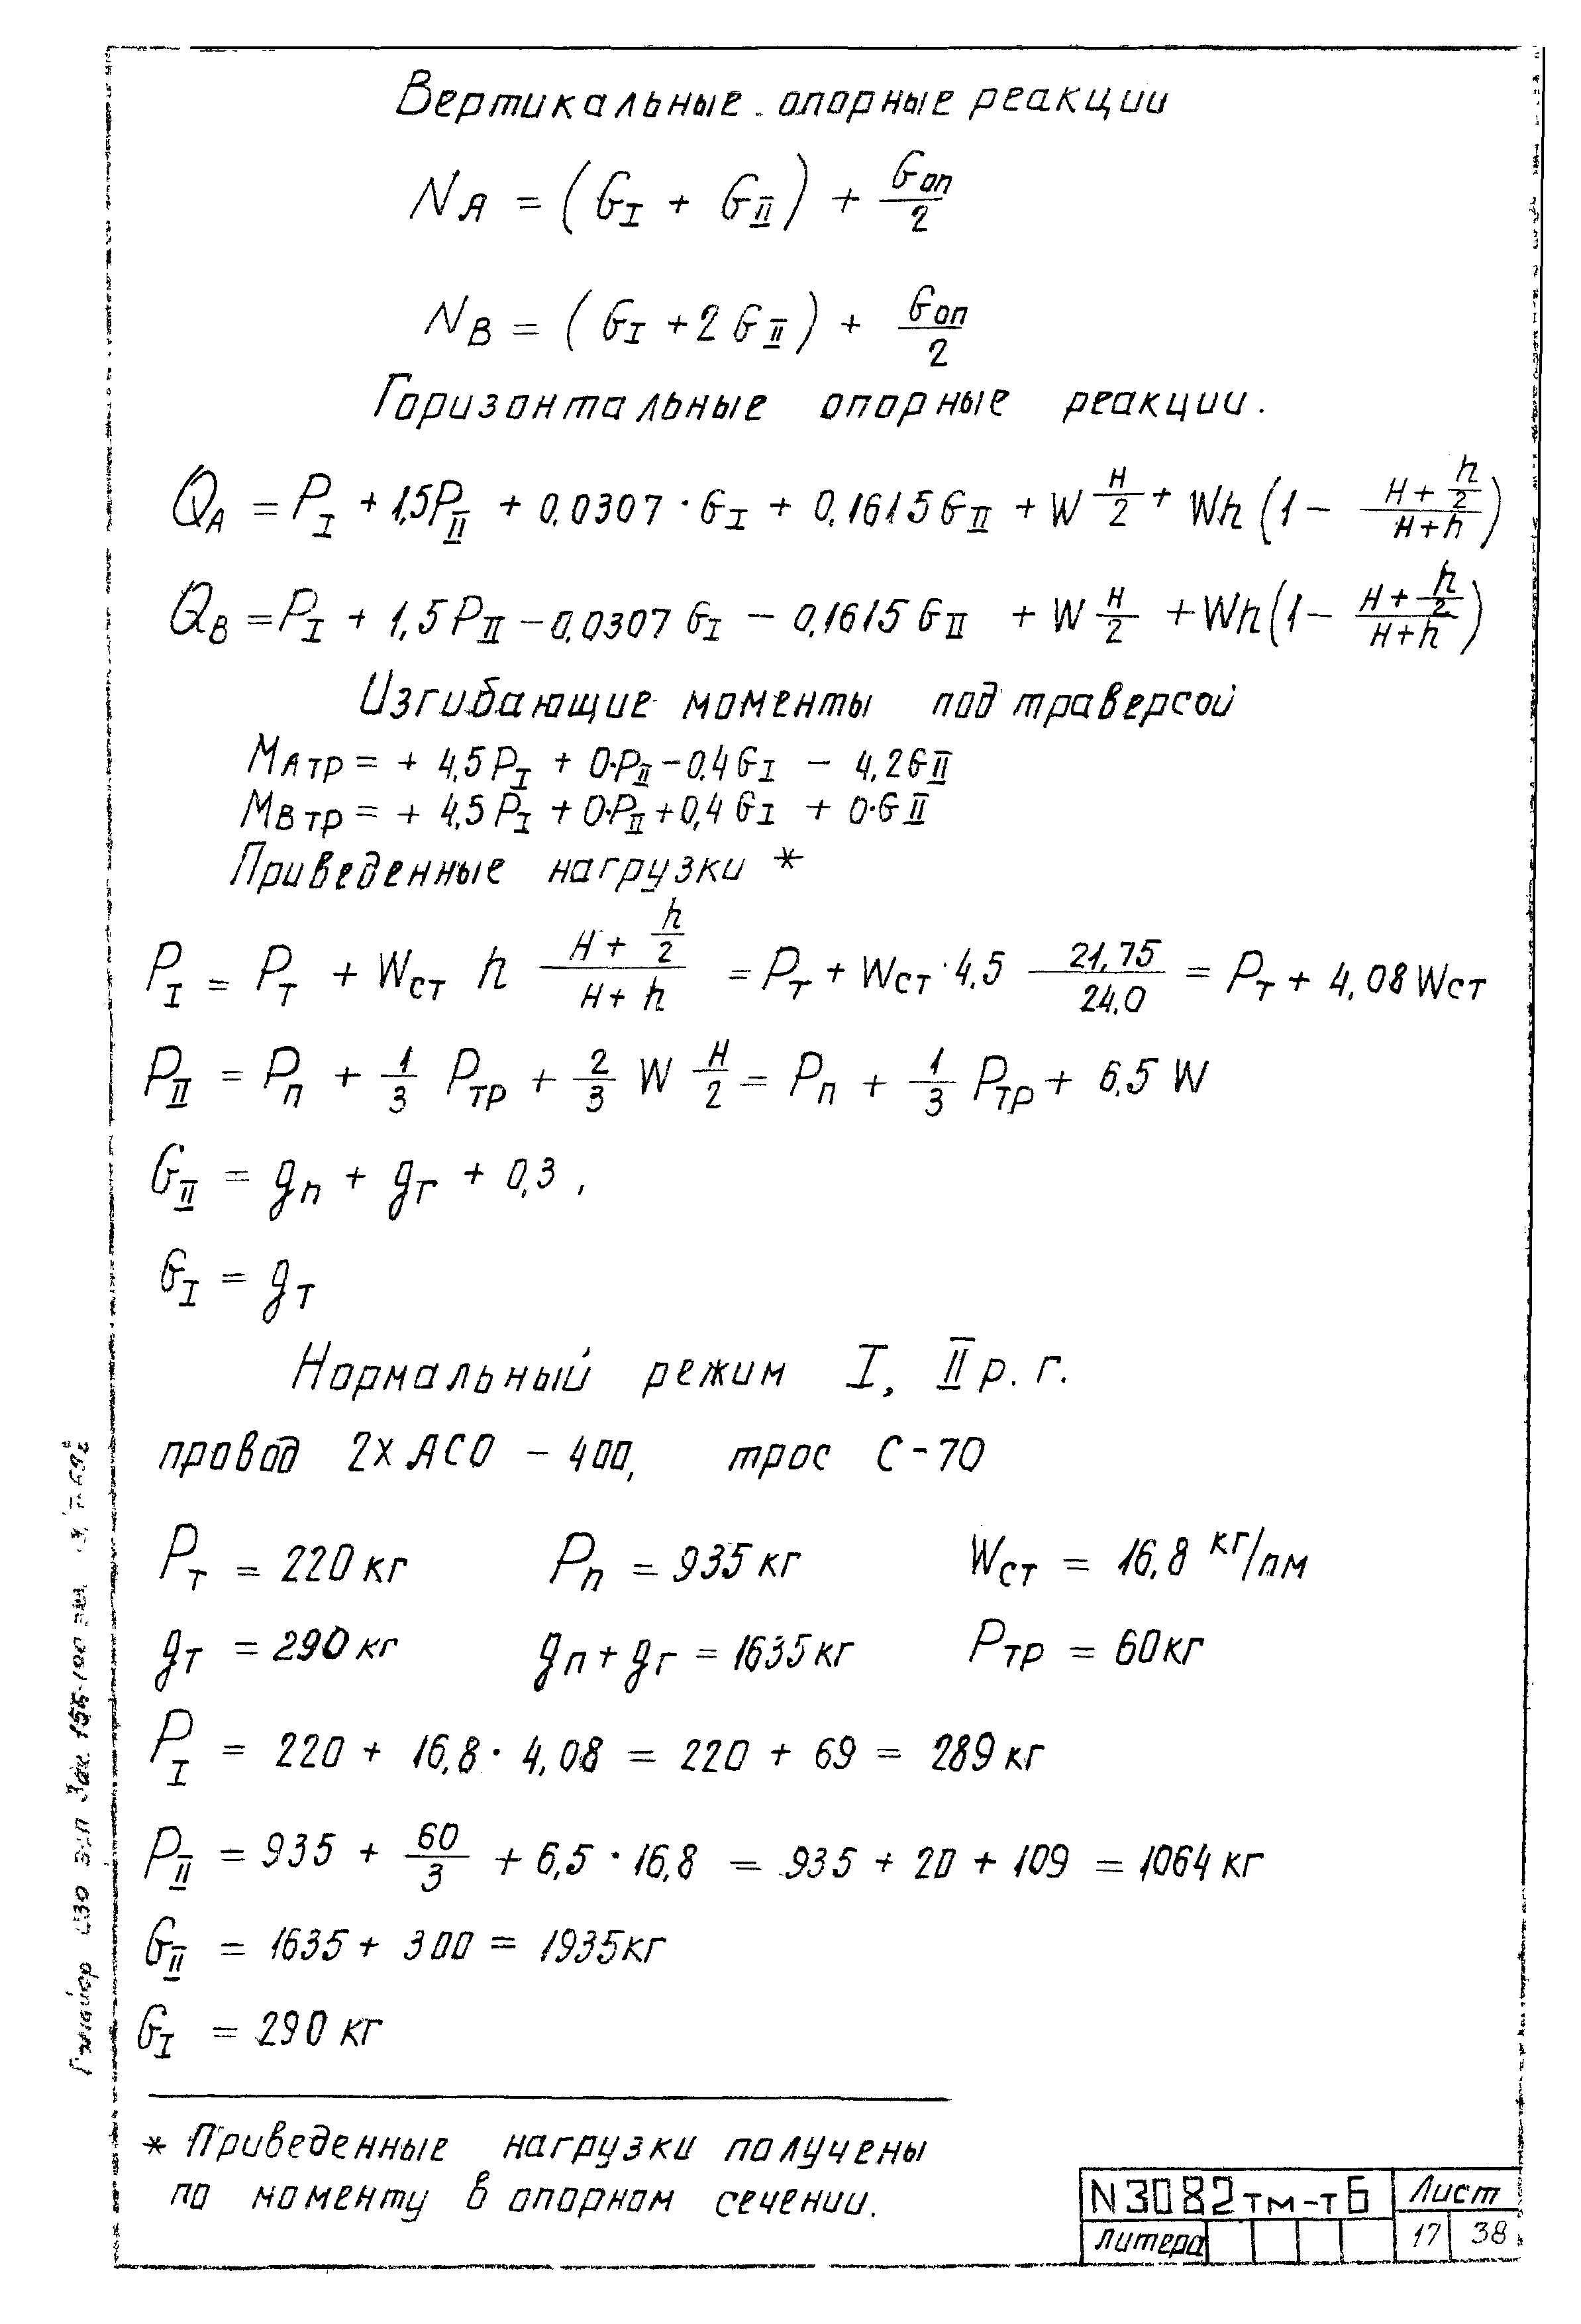 Вертикальные опорные реакции
N_A = (G_I + G_II) + G_оп/2
N_B = (G_I + 2 G_II) + G_оп/2
Горизонтальные опорные реакции.
Q_A = P_I + 1,5P_II + 0,0307 · G_I + 0,1615 G_II + W H/2 + Wh (1 − (H + h/2)/(H + h))
Q_B = P_I + 1,5 P_II − 0,0307 G_I − 0,1615 G_II + W H/2 + Wh (1 − (H + h/2)/(H + h))
Изгибающие моменты под траверсой
M_A тр = + 4,5 P_I + 0·P_II − 0,4 G_I − 4,2 G_II
M_B тр = + 4,5 P_I + 0·P_II + 0,4 G_I + 0·G_II
Приведенные нагрузки *
P_I = P_т + W_ст h (H + h/2)/(H + h) = P_т + W_ст · 4,5 21,75/24,0 = P_т + 4,08 W_ст
P_II = P_п + 1/3 P_тр + 2/3 W H/2 = P_п + 1/3 P_тр + 6,5 W
G_II = g_п + g_г + 0,3,
G_I = g_т
Нормальный режим I, II р. г.
провод 2х АСО – 400, трос С-70
P_т = 220 кг P_п = 935 кг W_ст = 16,8 кг/пм
g_т = 290 кг g_п + g_г = 1635 кг P_тр = 60 кг
P_I = 220 + 16,8 · 4,08 = 220 + 69 = 289 кг
P_II = 935 + 60/3 + 6,5 · 16,8 = 935 + 20 + 109 = 1064 кг
G_II = 1635 + 300 = 1935 кг
G_I = 290 кг
* Приведенные нагрузки получены
по моменту в опорном сечении.
N 3082тм-т6 Лист
литера 17 38